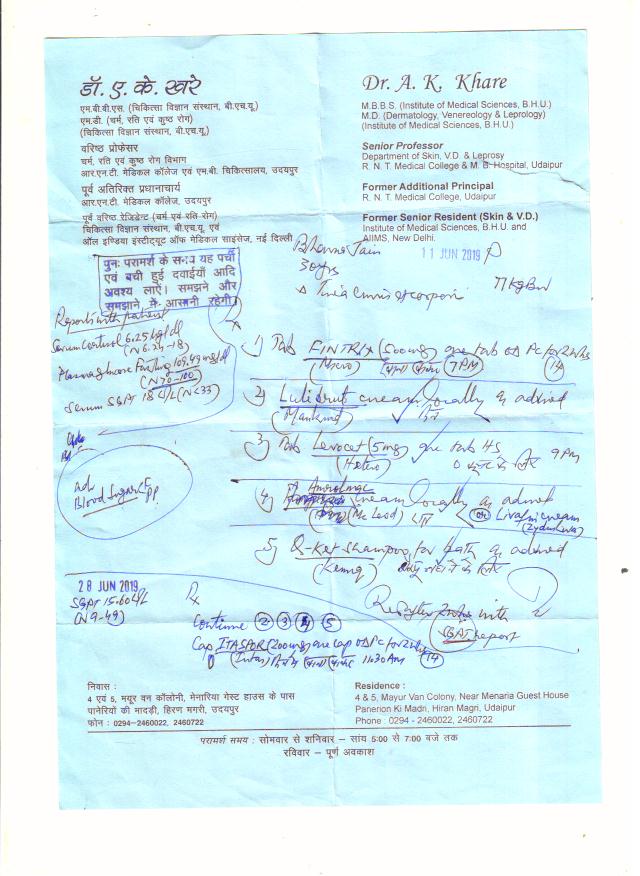 डॉ. ए. के. खरे
एम.बी.बी.एस. (चिकित्सा विज्ञान संस्थान, बी.एच.यू.)
एम.डी. (चर्म, रति एवं कुष्ठ रोग)
(चिकित्सा विज्ञान संस्थान, बी.एच.यू.)
वरिष्ठ प्रोफेसर
चर्म, रति एवं कुष्ठ रोग विभाग
आर.एन.टी. मेडिकल कॉलेज एवं एम.बी. चिकित्सालय, उदयपुर
पूर्व अतिरिक्त प्रधानाचार्य
आर.एन.टी. मेडिकल कॉलेज, उदयपुर
पूर्व वरिष्ठ रेजिडेन्ट (चर्म एवं रति रोग)
चिकित्सा विज्ञान संस्थान, बी.एच.यू. एवं
ऑल इण्डिया इंस्टीट्यूट ऑफ मेडिकल साइंसेज, नई दिल्ली
Dr. A. K. Khare
M.B.B.S. (Institute of Medical Sciences, B.H.U.)
M.D. (Dermatology, Venereology & Leprology)
(Institute of Medical Sciences, B.H.U.)
Senior Professor
Department of Skin, V.D. & Leprosy
R. N. T. Medical College & M. B. Hospital, Udaipur
Former Additional Principal
R. N. T. Medical College, Udaipur
Former Senior Resident (Skin & V.D.)
Institute of Medical Sciences, B.H.U. and
AIIMS, New Delhi.
पुनः परामर्श के समय यह पर्ची
एवं बची हुई दवाईयाँ आदि
अवश्य लाऐं। समझने और
समझाने में आसानी रहेगी।
Jain
11 JUN 2019
30yrs
Tinea Cruris et corporis
77 kg
Reports with patient
Serum Cortisol 6.25
Plasma glucose Fasting 109.49 mg/dl
(N 70-100)
Serum SGPT 18 U/L (N<33)
1) Tab FINTRIX (500mg) one tab OD PC for 2wks
(Micro) 7PM 14
2) cream locally as advised
(Mankind)
3) Tab Levocet (5mg) one tab HS
(Hetero) 9 PM
4) cream locally as advised
cream
5) Q-Ket shampoo for bath as advised
Ad
Blood Sugar F
PP
28 JUN 2019
SGPT 15.60 U/L
Rx
with
SGPT report
Continue 2 3 4 5
Cap ITASPOR (200mg) one cap OD PC for 2wks
(Intas) 11:30 Am 14
निवास :
4 एवं 5, मयूर वन कॉलोनी, मेनारिया गेस्ट हाउस के पास
पानेरियों की मादड़ी, हिरण मगरी, उदयपुर
फोन : 0294-2460022, 2460722
Residence :
4 & 5, Mayur Van Colony, Near Menaria Guest House
Panerion Ki Madri, Hiran Magri, Udaipur
Phone : 0294 - 2460022, 2460722
परामर्श समय : सोमवार से शनिवार – सांय 5:00 से 7:00 बजे तक
रविवार – पूर्ण अवकाश